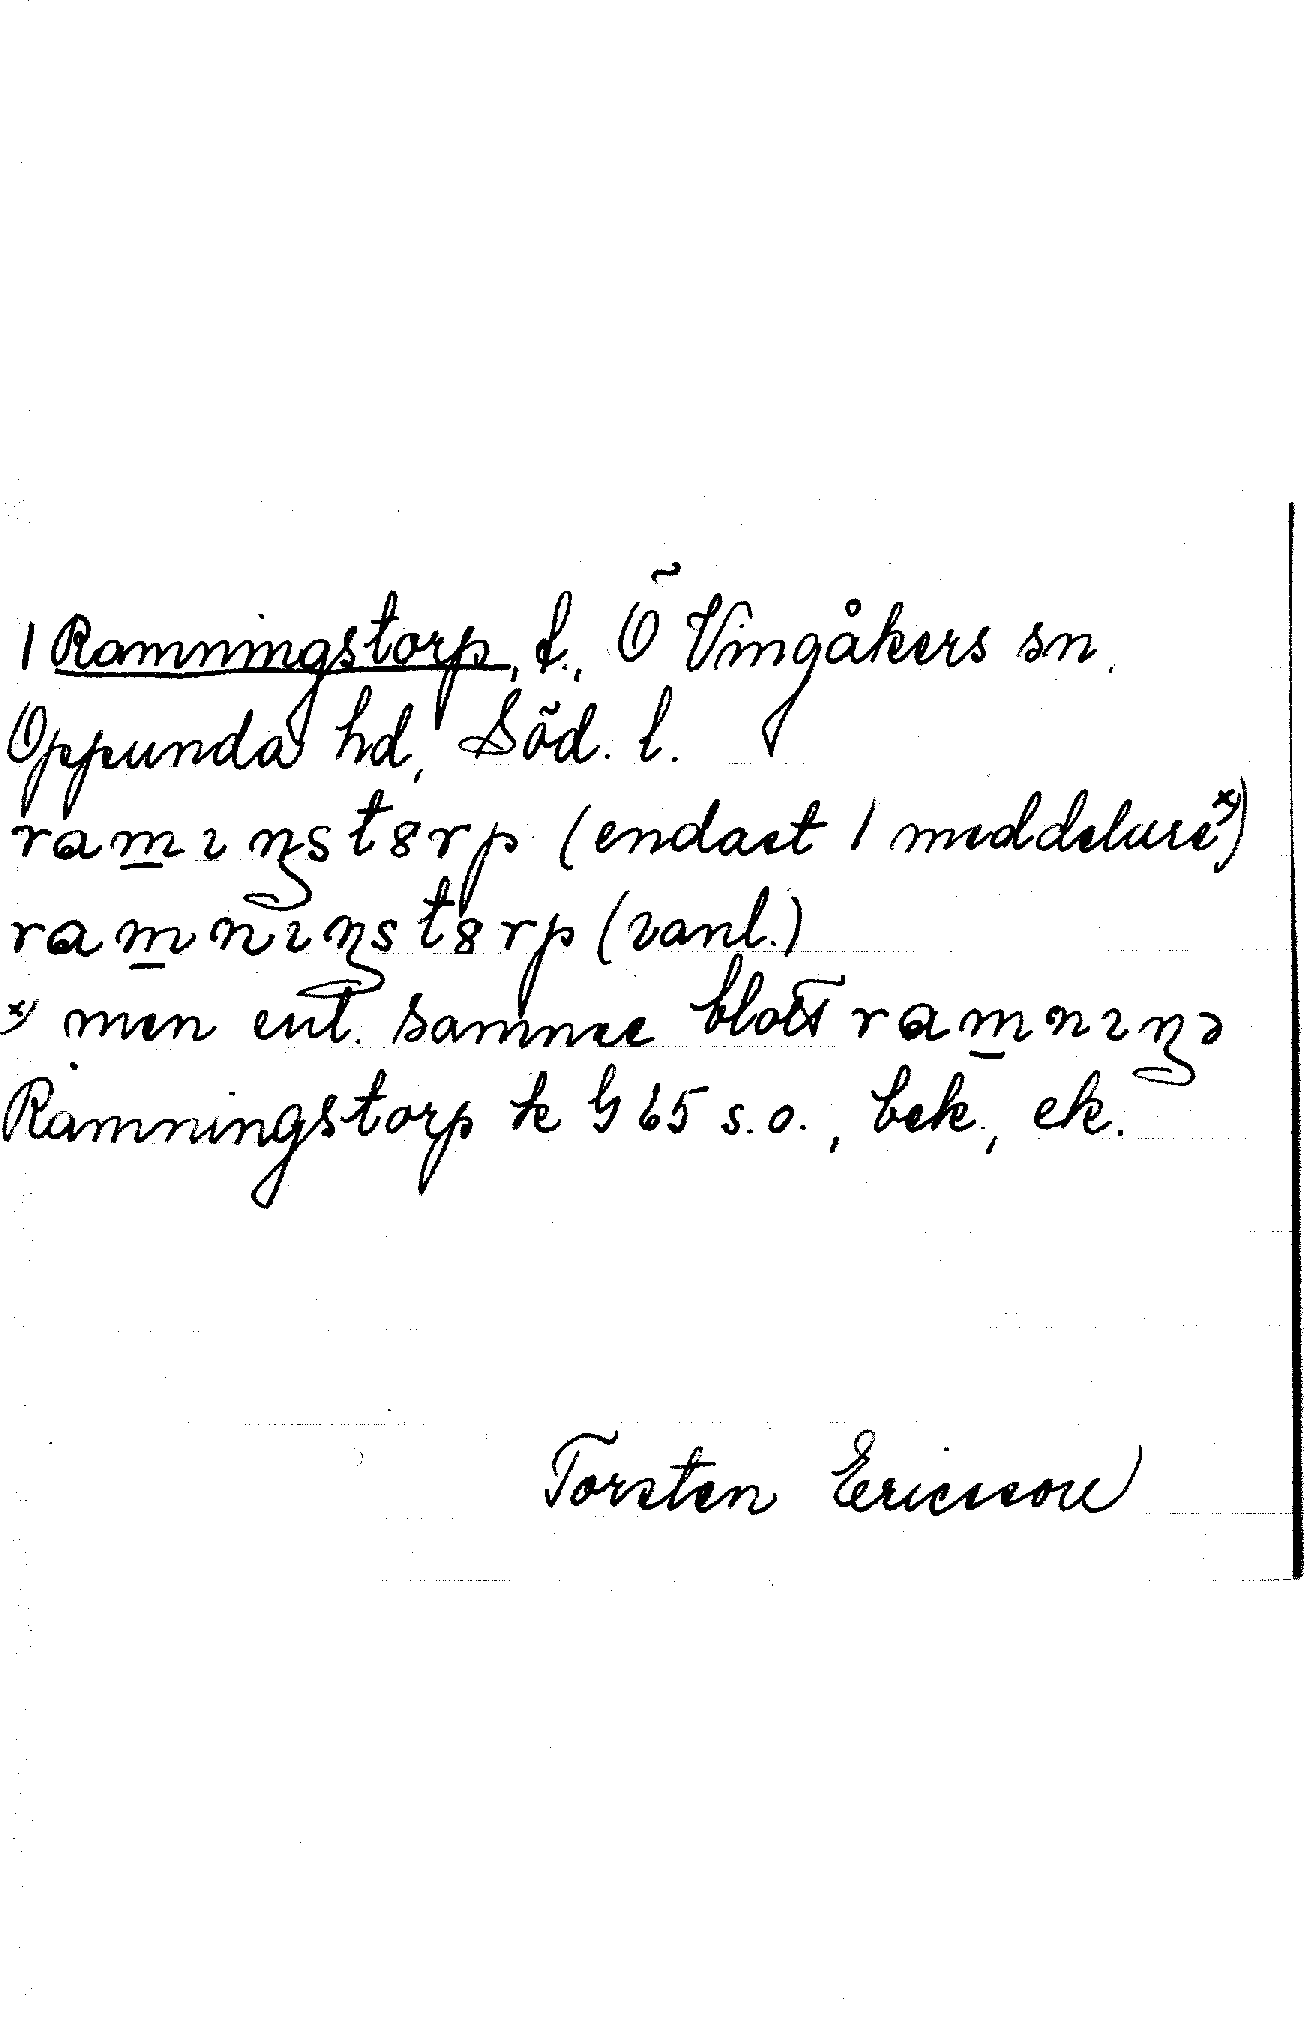 1 Ramningstorp, t., Ö Vingåkers sn.
Oppunda hd, Söd. l.
ramıŋstɞrp (endast 1 meddelare x))
ramnıŋstɞrp (vanl.)
x) men enl. samme blott ramnıŋə
Ramningstorp k G 65 s.o., bek., ek.
Torsten Ericsson